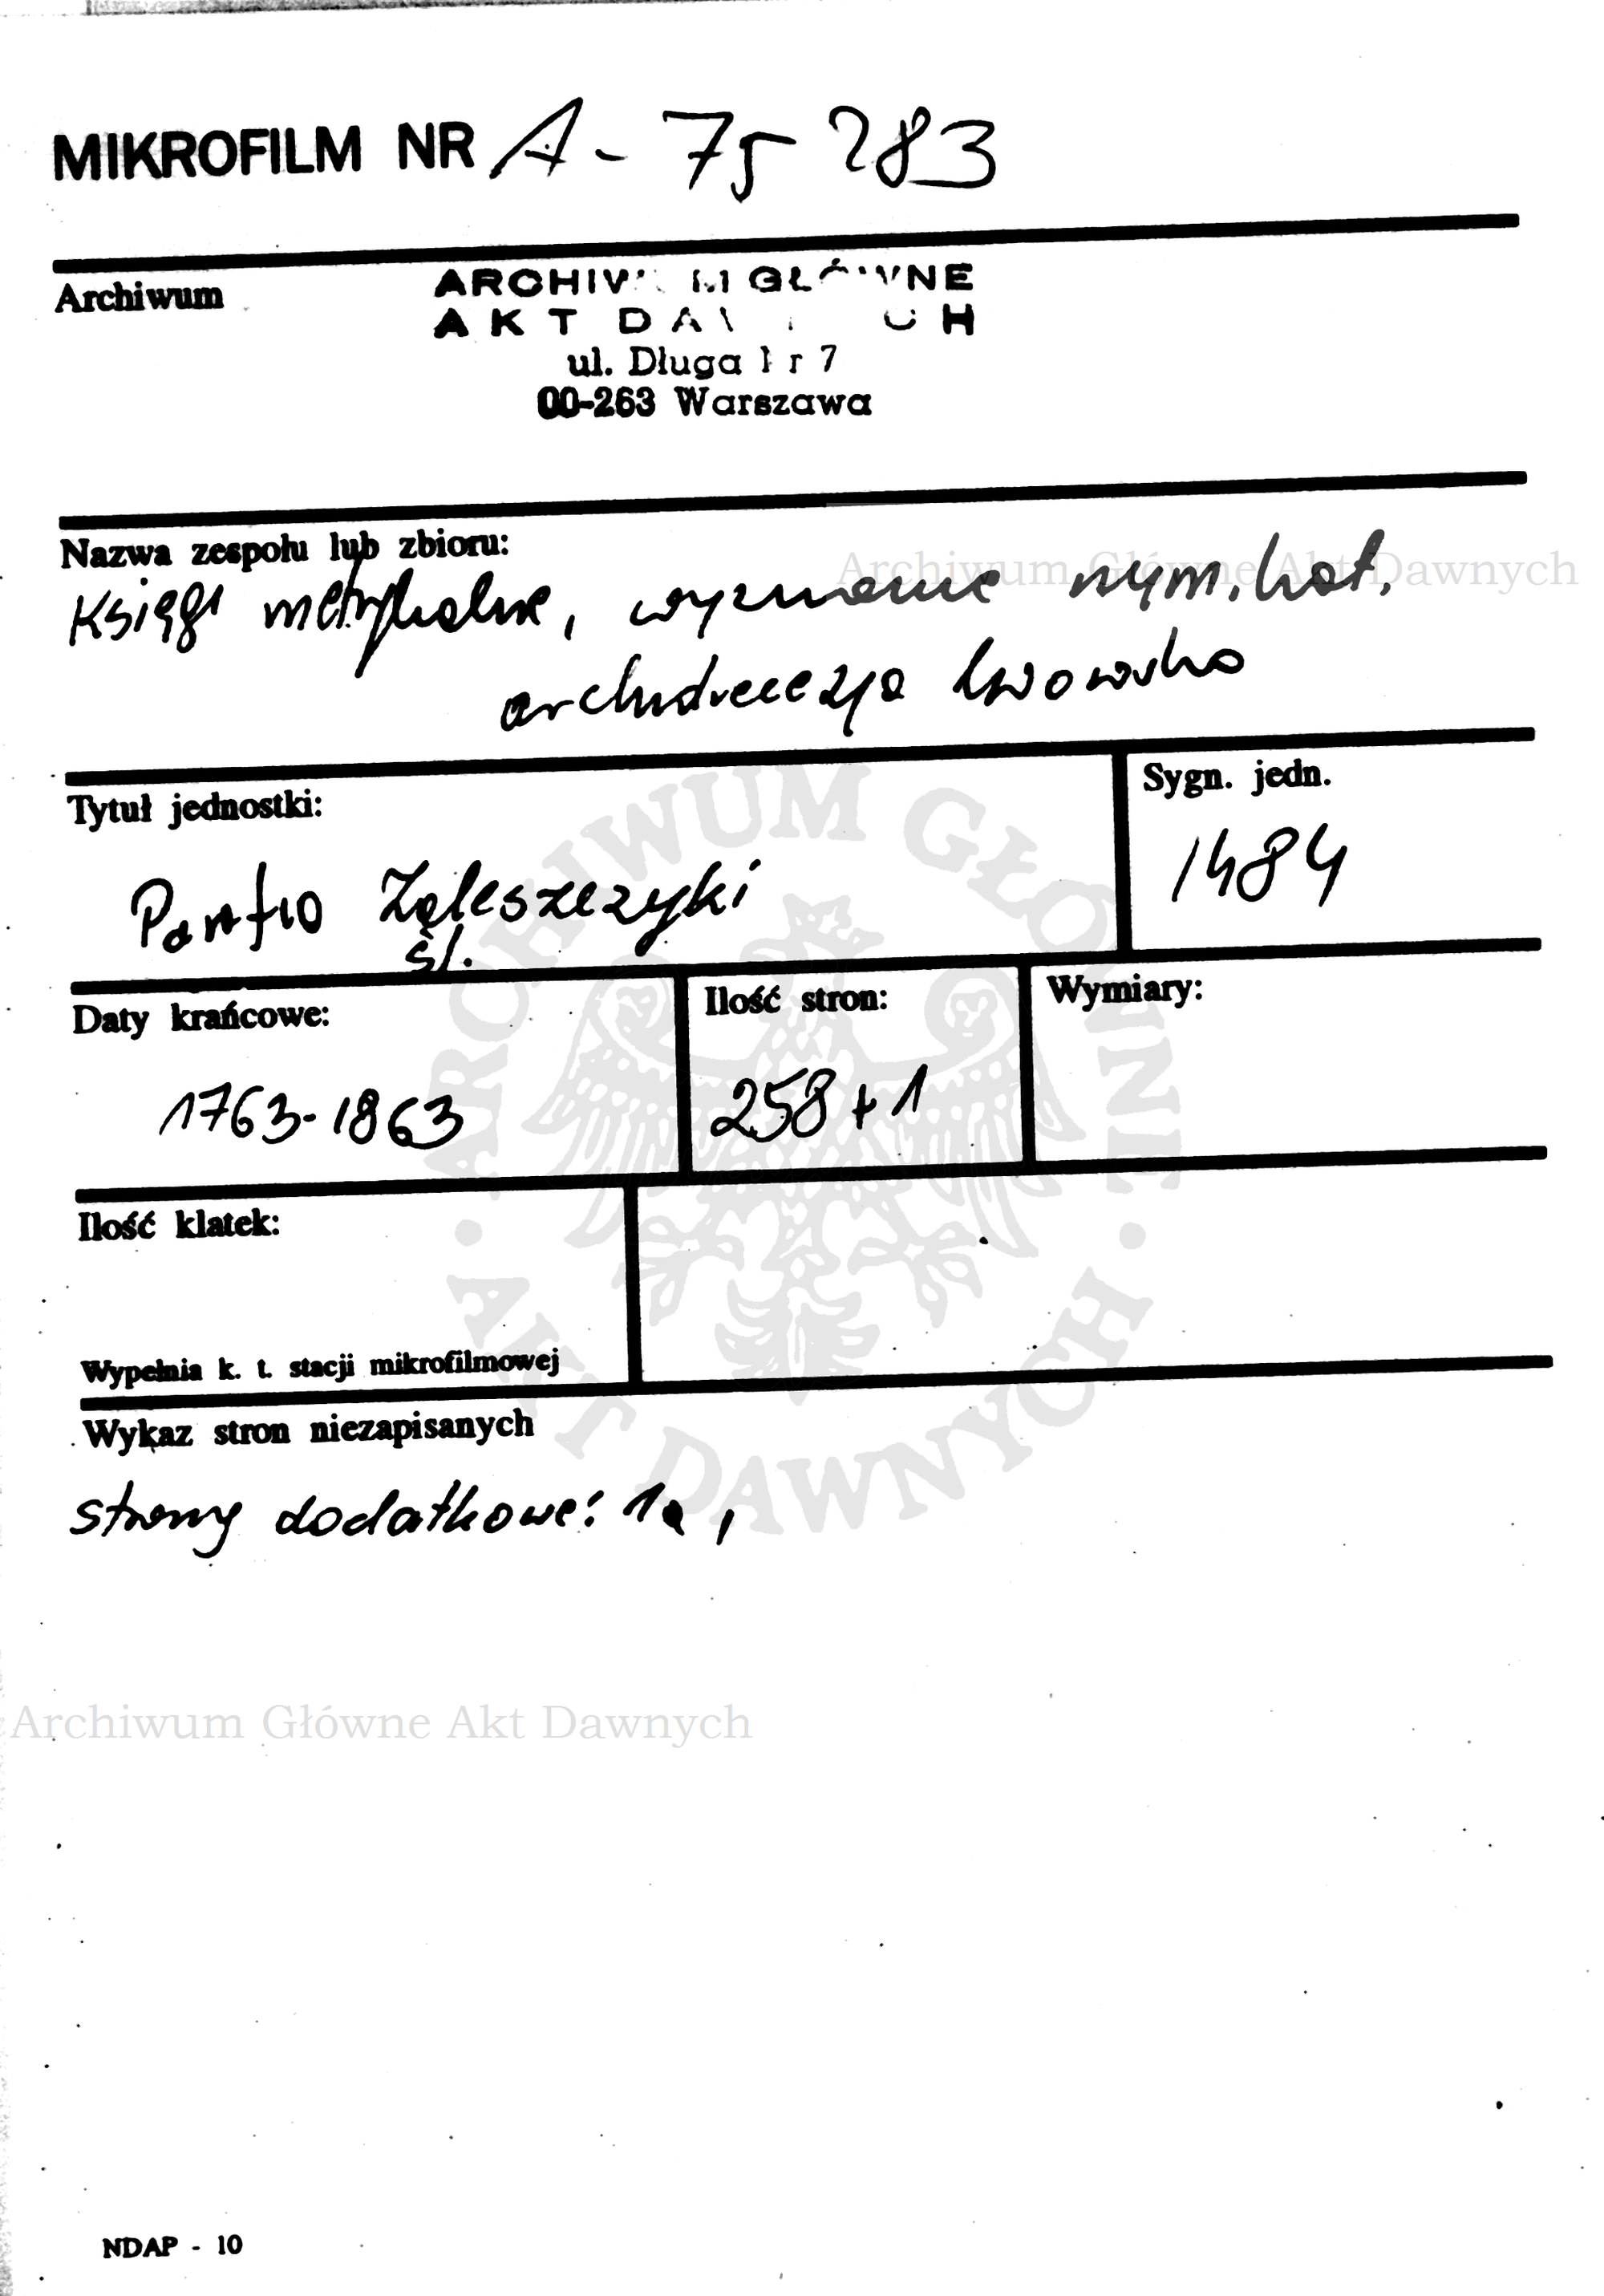 MIKROFILM NR A-75 283
Archiwum
ARCHIWUM GŁÓWNE
AKT DAWNYCH
ul. Długa Nr 7
00-263 Warszawa
Nazwa zespołu lub zbioru:
Archiwum Główne Akt Dawnych
Księgi metrykalne, wyznanie rzym. kat.
archidiecezja lwowska
Tytuł jednostki:
Sygn. jedn.
Parafia Zaleszczyki
śl.
1484
Daty krańcowe:
Ilość stron:
Wymiary:
1763-1863
258+1
Ilość klatek:
Wypełnia k. t. stacji mikrofilmowej
Wykaz stron niezapisanych
strony dodatkowe: 1a,
ARCHIWUM GŁÓWNE · AKT DAWNYCH ·
Archiwum Główne Akt Dawnych
NDAP - 10